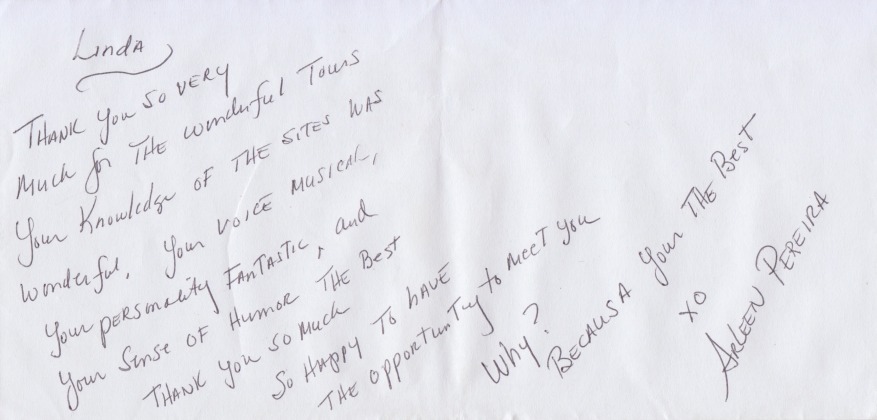 Linda
THANK you so VERY
Much for THE wonderful Tours
Your Knowledge OF THE SITES WAS
wonderful, your VOICE MUSICAL,
your personality FANTASTIC, and
your Sense OF Humor THE Best
THANK you so Much
So HAPPY To HAVE
THE opportunity to MEET you
Why?
BECAUSA your THE BEST
XO
ARLEEN PEREIRA